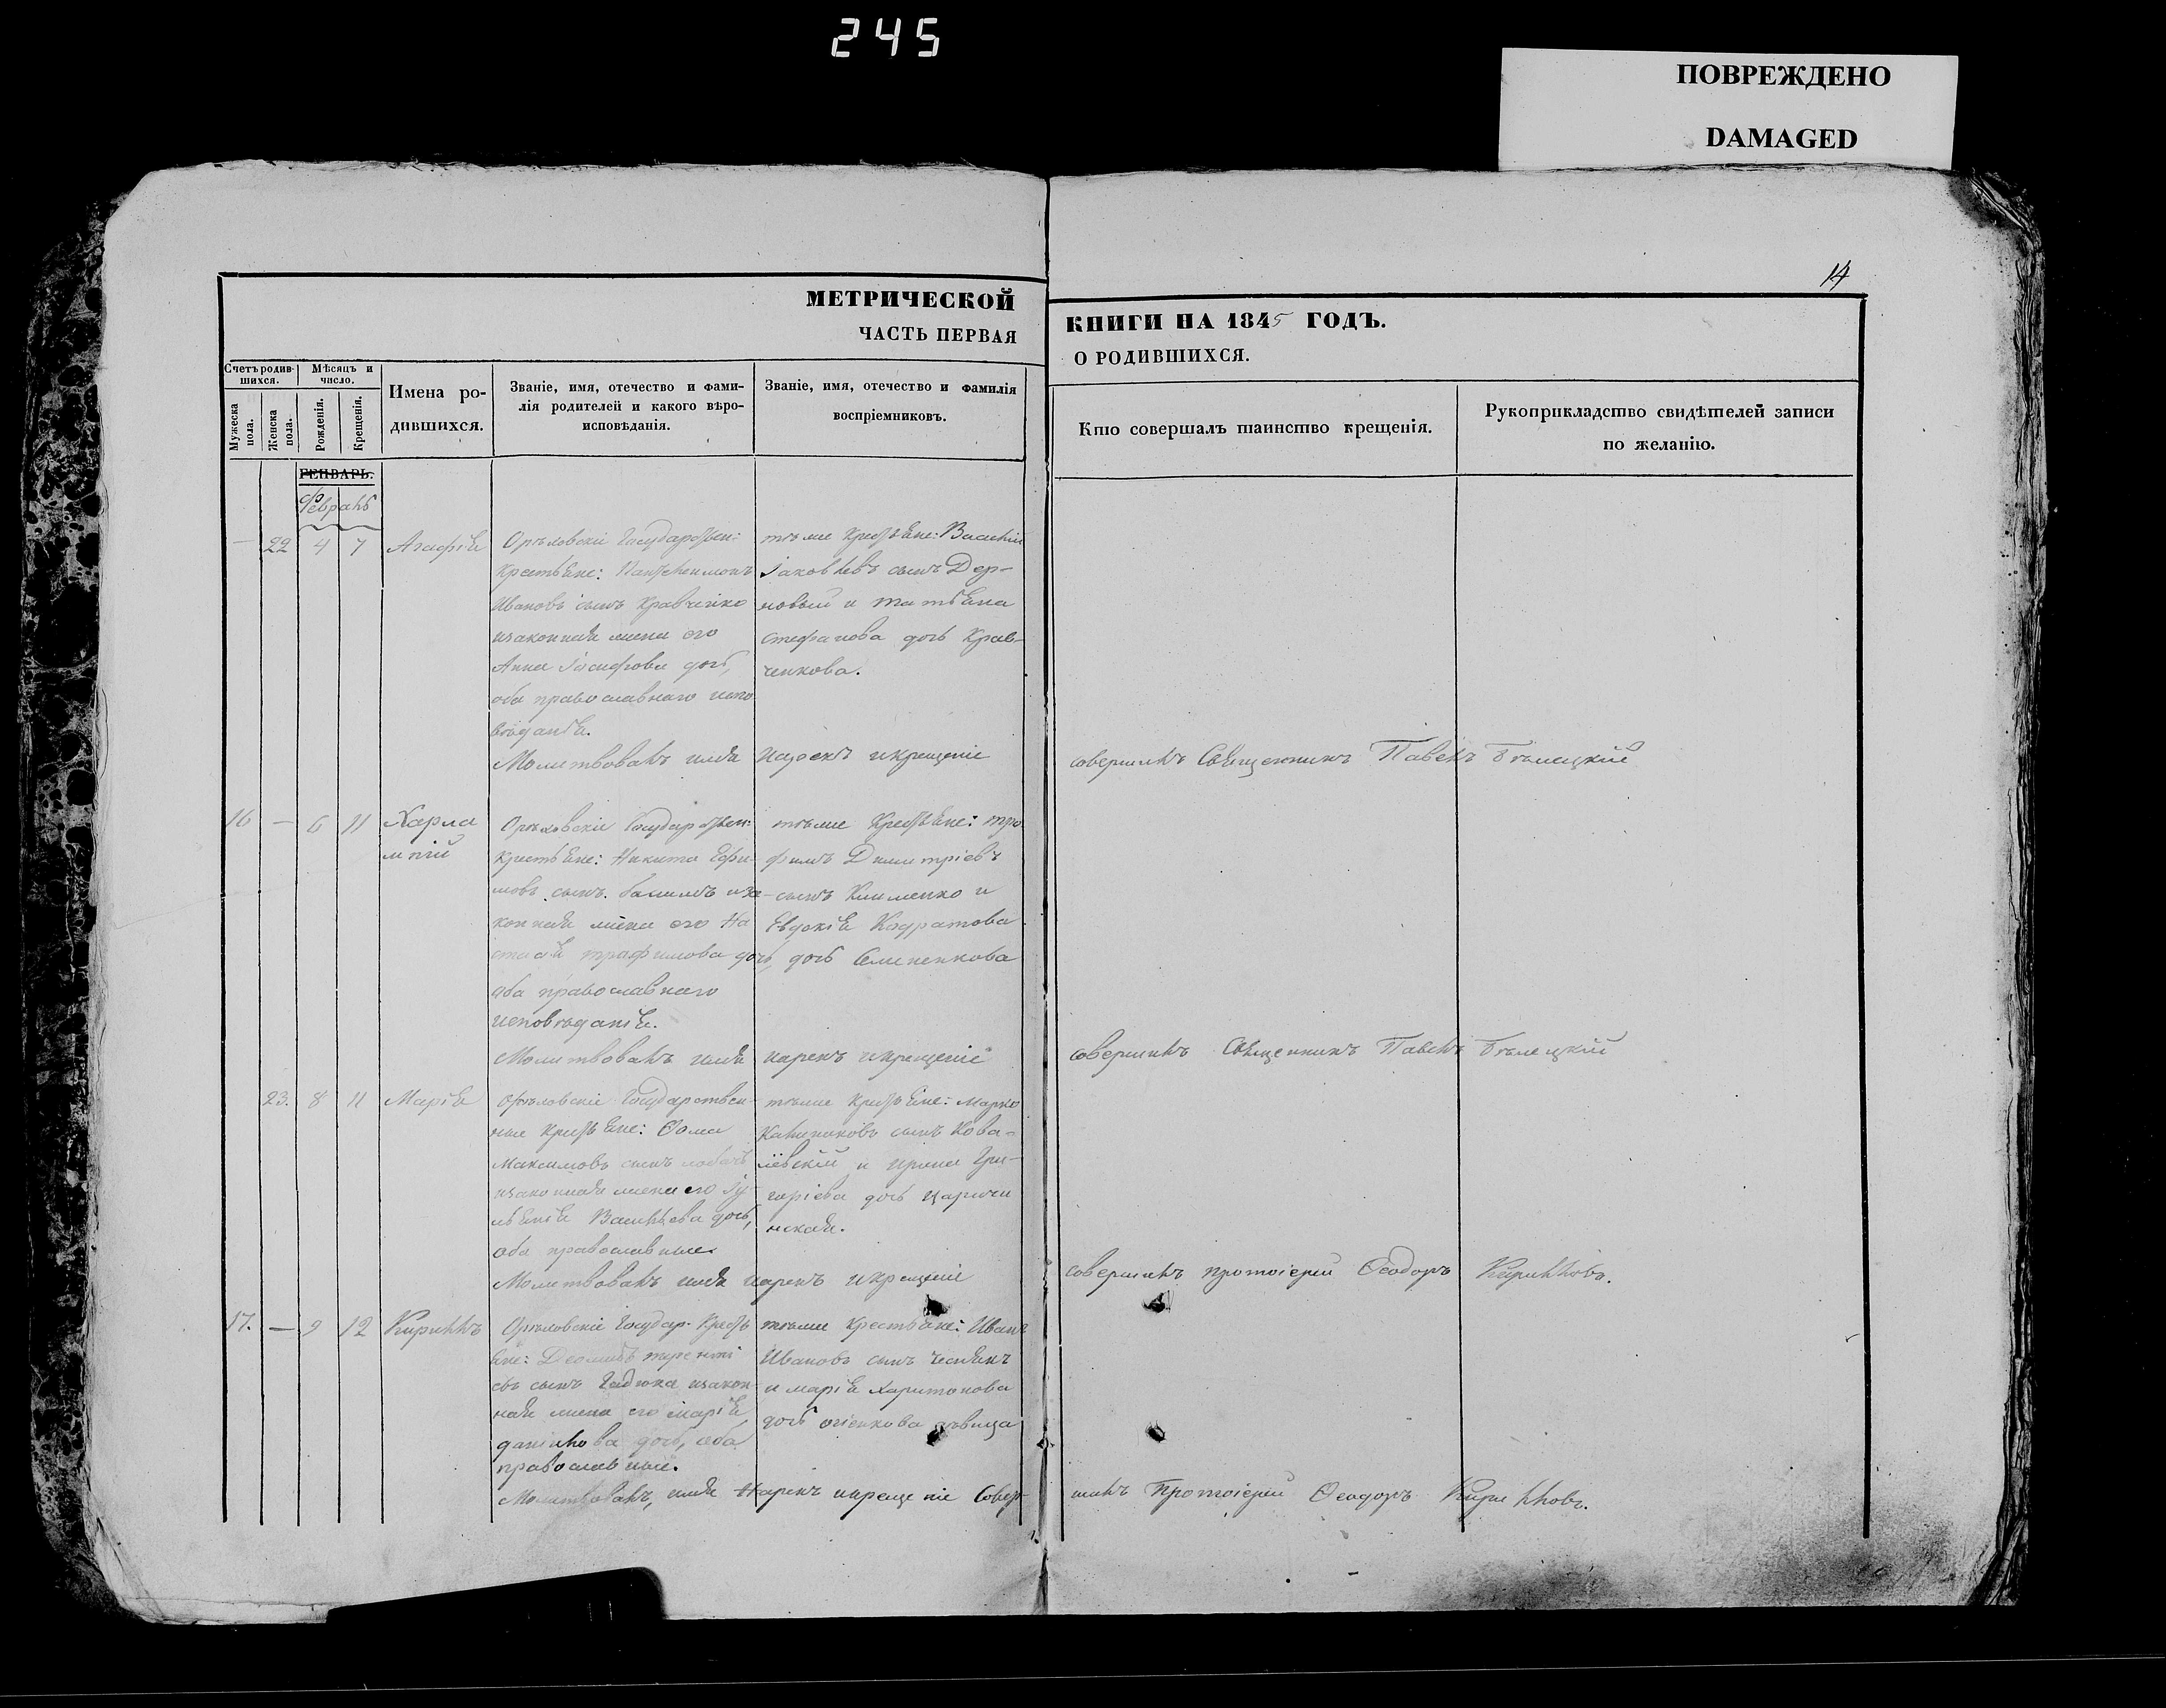 245
ПОВРЕЖДЕНО
DAMAGED
14
МЕТРИЧЕСКОЙ
ЧАСТЬ ПЕРВАЯ
КНИГИ НА 1845 ГОДЪ.
О РОДИВШИХСЯ.
Счетъ родив-
шихся.
Мужеска
пола.
Женска
пола.
Мѣсяцъ и
число.
Рожденія.
Крещенія.
Имена ро-
дившихся.
Званіе, имя, отечество и фами-
лія родителей и какого вѣро-
исповѣданія.
Званіе, имя, отечество и фамилія
воспріемниковъ.
Кто совершалъ таинство крещенія.
Рукоприкладство свидѣтелей записи
по желанію.
ГЕНВАРЬ.
Февраль
— 22 4 7 Агафія
Орѣловскіе Государствен:
крестьяне: Пантелеимонъ
Ивановъ сынъ Кравченко
изаконная жена его
Анна Іосифова дочь,
оба православнаго испо
вѣданія.
тѣже крестьяне: Василій
Іаковлевъ сынъ Дер-
новый и татьяна
стефанова дочь Крав-
ченкова.
Молитвовалъ имя нарекъ икрещеніе
совершилъ Священникъ Павелъ Бѣлецкій
16 — 6 11 Харла
мпій
Орѣловскіе Государствен:
крестьяне: Никита Ефи-
мовъ сынъ иза-
конная жена его На
стасія трофимова дочь,
оба православнаго
исповѣданія.
тѣже крестьяне: тро
фимъ Димитріевъ
сынъ Клименко и
Евдокія Кодратова
дочь Семененкова
Молитвовалъ имя нарекъ икрещеніе
совершилъ Священникъ Павелъ Бѣлецкій
23. 8 11 Марія
Орѣловскіе Государствен-
ные крестьяне: Ѳома
Максимовъ сынъ
изаконная жена его Іу-
ліанія Васильева дочь,
оба православные.
тѣже крестьяне: Марко
Калениковъ сынъ Кова-
левскій и ирина Гри-
горіева дочь царичи
нская.
Молитвовалъ имя нарекъ икрещеніе
совершилъ протоіерей Ѳеодоръ Кирилловъ.
17. — 9 12 Кириллъ
Орѣловскіе Государ. Кресть
яне: теренті
евъ сынъ Гадюка изакон-
ная жена его марія
данилова дочь, оба
православные.
тѣже крестьяне: Иванъ
Ивановъ сынъ
и марія Харитонова
дочь дѣвица
Молитвовалъ, имя Нарекъ икрещеніе Совер-
шилъ Протоіерей Ѳеодоръ Кирилловъ.